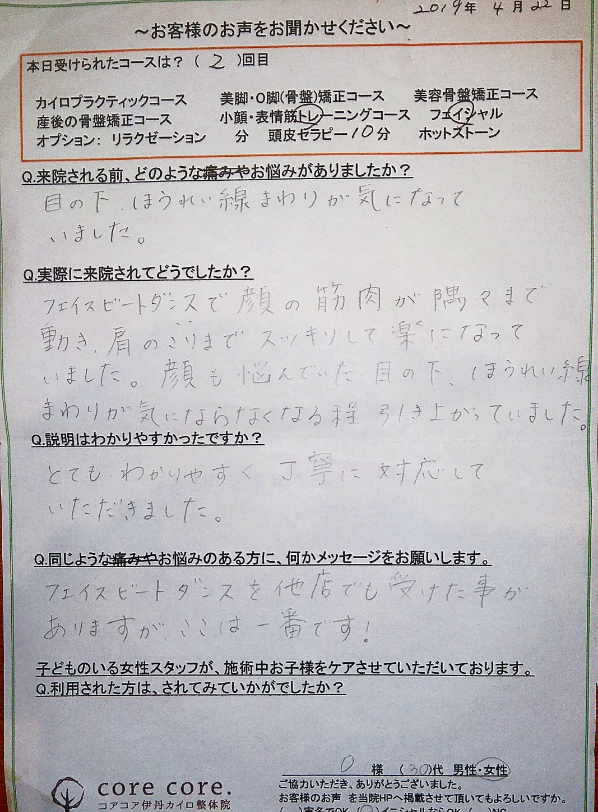 2019年 4月22日
～お客様のお声をお聞かせください～
本日受けられたコースは？（ 2 ）回目
カイロプラクティックコース 美脚・O脚(骨盤)矯正コース 美容骨盤矯正コース
産後の骨盤矯正コース 小顔・表情筋トレーニングコース フェイシャル
オプション： リラクゼーション 分 頭皮セラピー 10分 ホットストーン
Q.来院される前、どのような痛みやお悩みがありましたか？
目の下、ほうれい線まわりが気になって
いました。
Q.実際に来院されてどうでしたか？
フェイスビートダンスで顔の筋肉が隅々まで
動き、肩のこりまでスッキリして楽になって
いました。顔も悩んでいた目の下、ほうれい線
まわりが気にならなくなる程 引き上がっていました。
Q.説明はわかりやすかったですか？
とてもわかりやすく丁寧に対応して
いただきました。
Q.同じような痛みやお悩みのある方に、何かメッセージをお願いします。
フェイスビートダンスを他店でも受けた事が
ありますが、ここは一番です！
子どものいる女性スタッフが、施術中お子様をケアさせていただいております。
Q.利用された方は、されてみていかがでしたか？
O 様 (30)代 男性・女性
ご協力いただき、ありがとうございました。
お客様のお声 を当院HPへ掲載させて頂いてもよろしいですか。
core core.
コアコア伊丹カイロ整体院